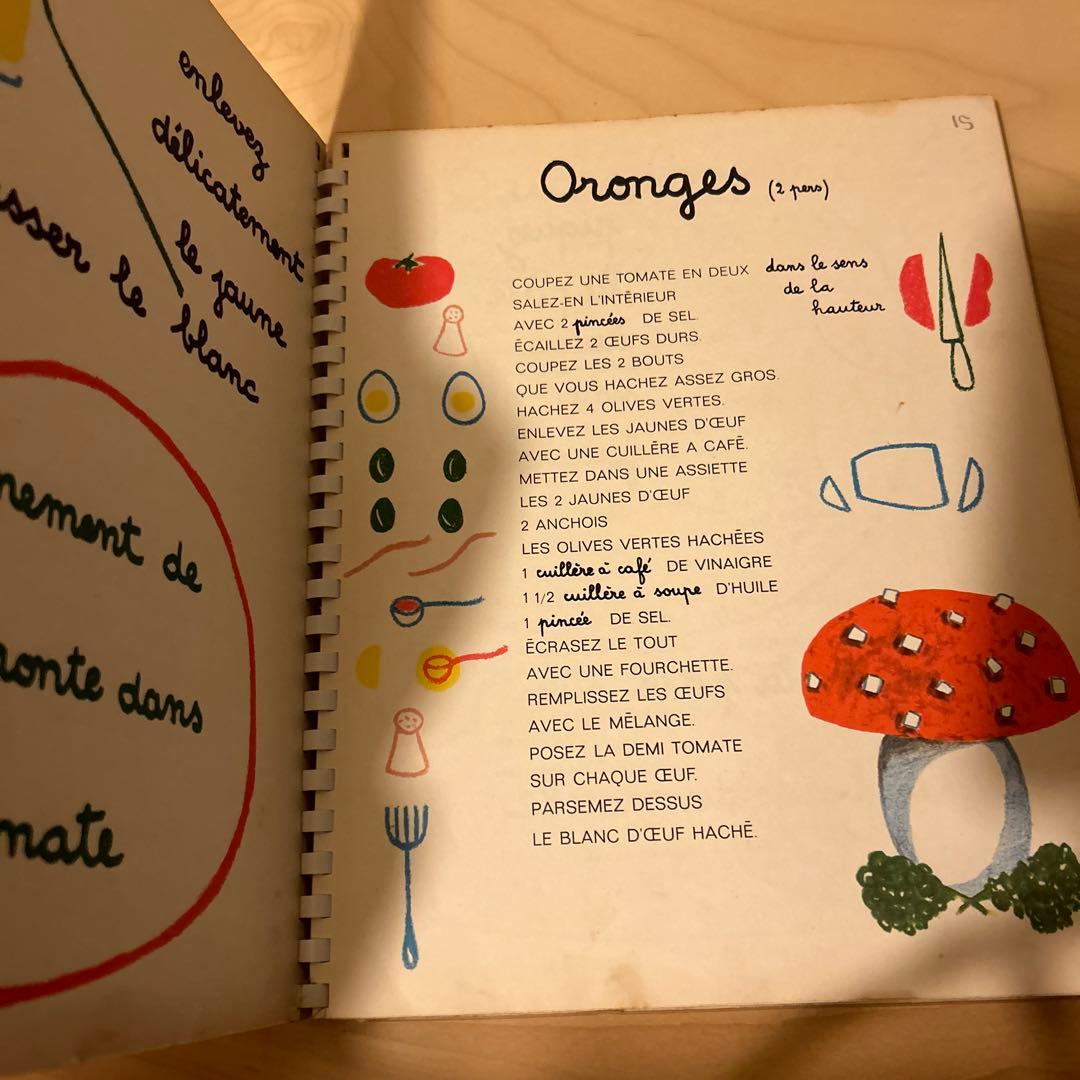 enlevez
délicatement
le jaune
le blanc
nement de
dans
15
Oronges (2 pers)
COUPEZ UNE TOMATE EN DEUX dans le sens
de la
hauteur
SALEZ-EN L'INTĒRIEUR
AVEC 2 pincées DE SEL
ĒCAILLEZ 2 ŒUFS DURS.
COUPEZ LES 2 BOUTS
QUE VOUS HACHEZ ASSEZ GROS.
HACHEZ 4 OLIVES VERTES.
ENLEVEZ LES JAUNES D'ŒUF
AVEC UNE CUILLĒRE A CAFĒ.
METTEZ DANS UNE ASSIETTE
LES 2 JAUNES D'ŒUF
2 ANCHOIS
LES OLIVES VERTES HACHĒES
1 cuillère à café DE VINAIGRE
1 1/2 cuillère à soupe D'HUILE
1 pincée DE SEL.
ĒCRASEZ LE TOUT
AVEC UNE FOURCHETTE.
REMPLISSEZ LES ŒUFS
AVEC LE MĒLANGE.
POSEZ LA DEMI TOMATE
SUR CHAQUE ŒUF.
PARSEMEZ DESSUS
LE BLANC D'ŒUF HACHĒ.